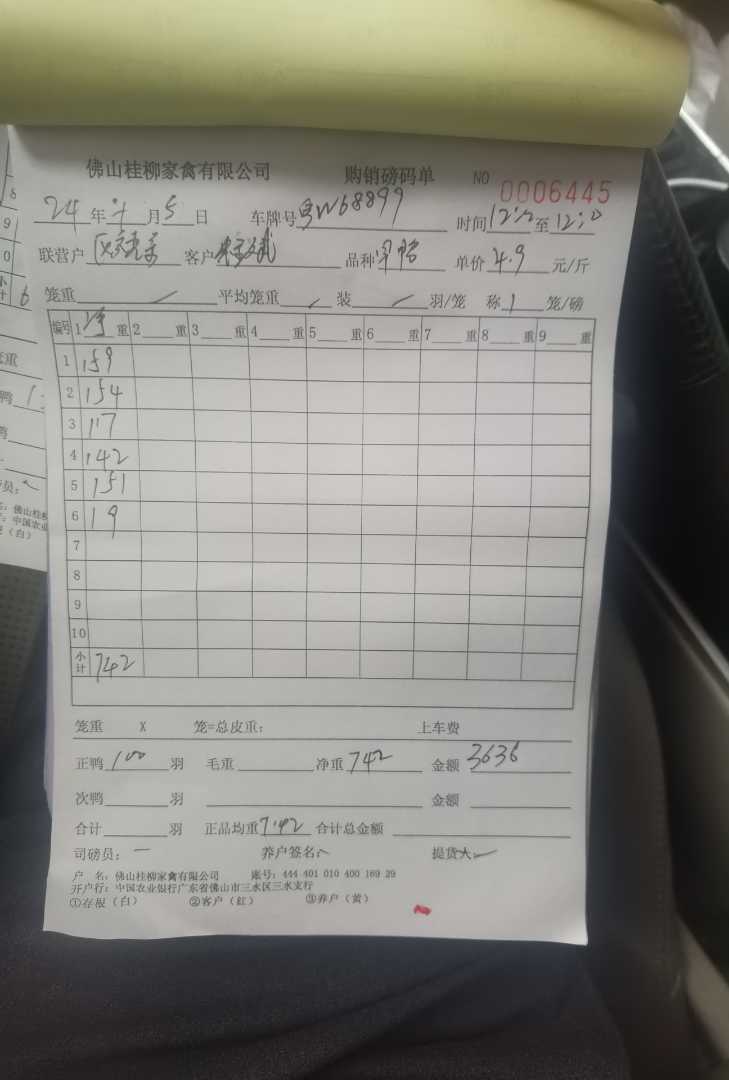 佛山桂柳家禽有限公司 购销磅码单 NO 0006445
24 年 月 5 日 车牌号 粤W68899 时间 12: 至 12:10
联营户 客户 品种 单价 4.9 元/斤
笼重 平均笼重 装 羽/笼 称 1 笼/磅
编号 1 重 2 重 3 重 4 重 5 重 6 重 7 重 8 重 9 重
1 159
2 154
3 117
4 142
5 151
6 19
7
8
9
10
小计 742
笼重 X 笼=总皮重: 上车费
正鸭 100 羽 毛重 净重 742 金额 3636
次鸭 羽 金额
合计 羽 正品均重 7.42 合计总金额
司磅员: 养户签名: 提货人:
户 名: 佛山桂柳家禽有限公司 账号: 444 401 010 400 169 29
开户行: 中国农业银行广东省佛山市三水区三水支行
①存根(白) ②客户(红) ③养户(黄)